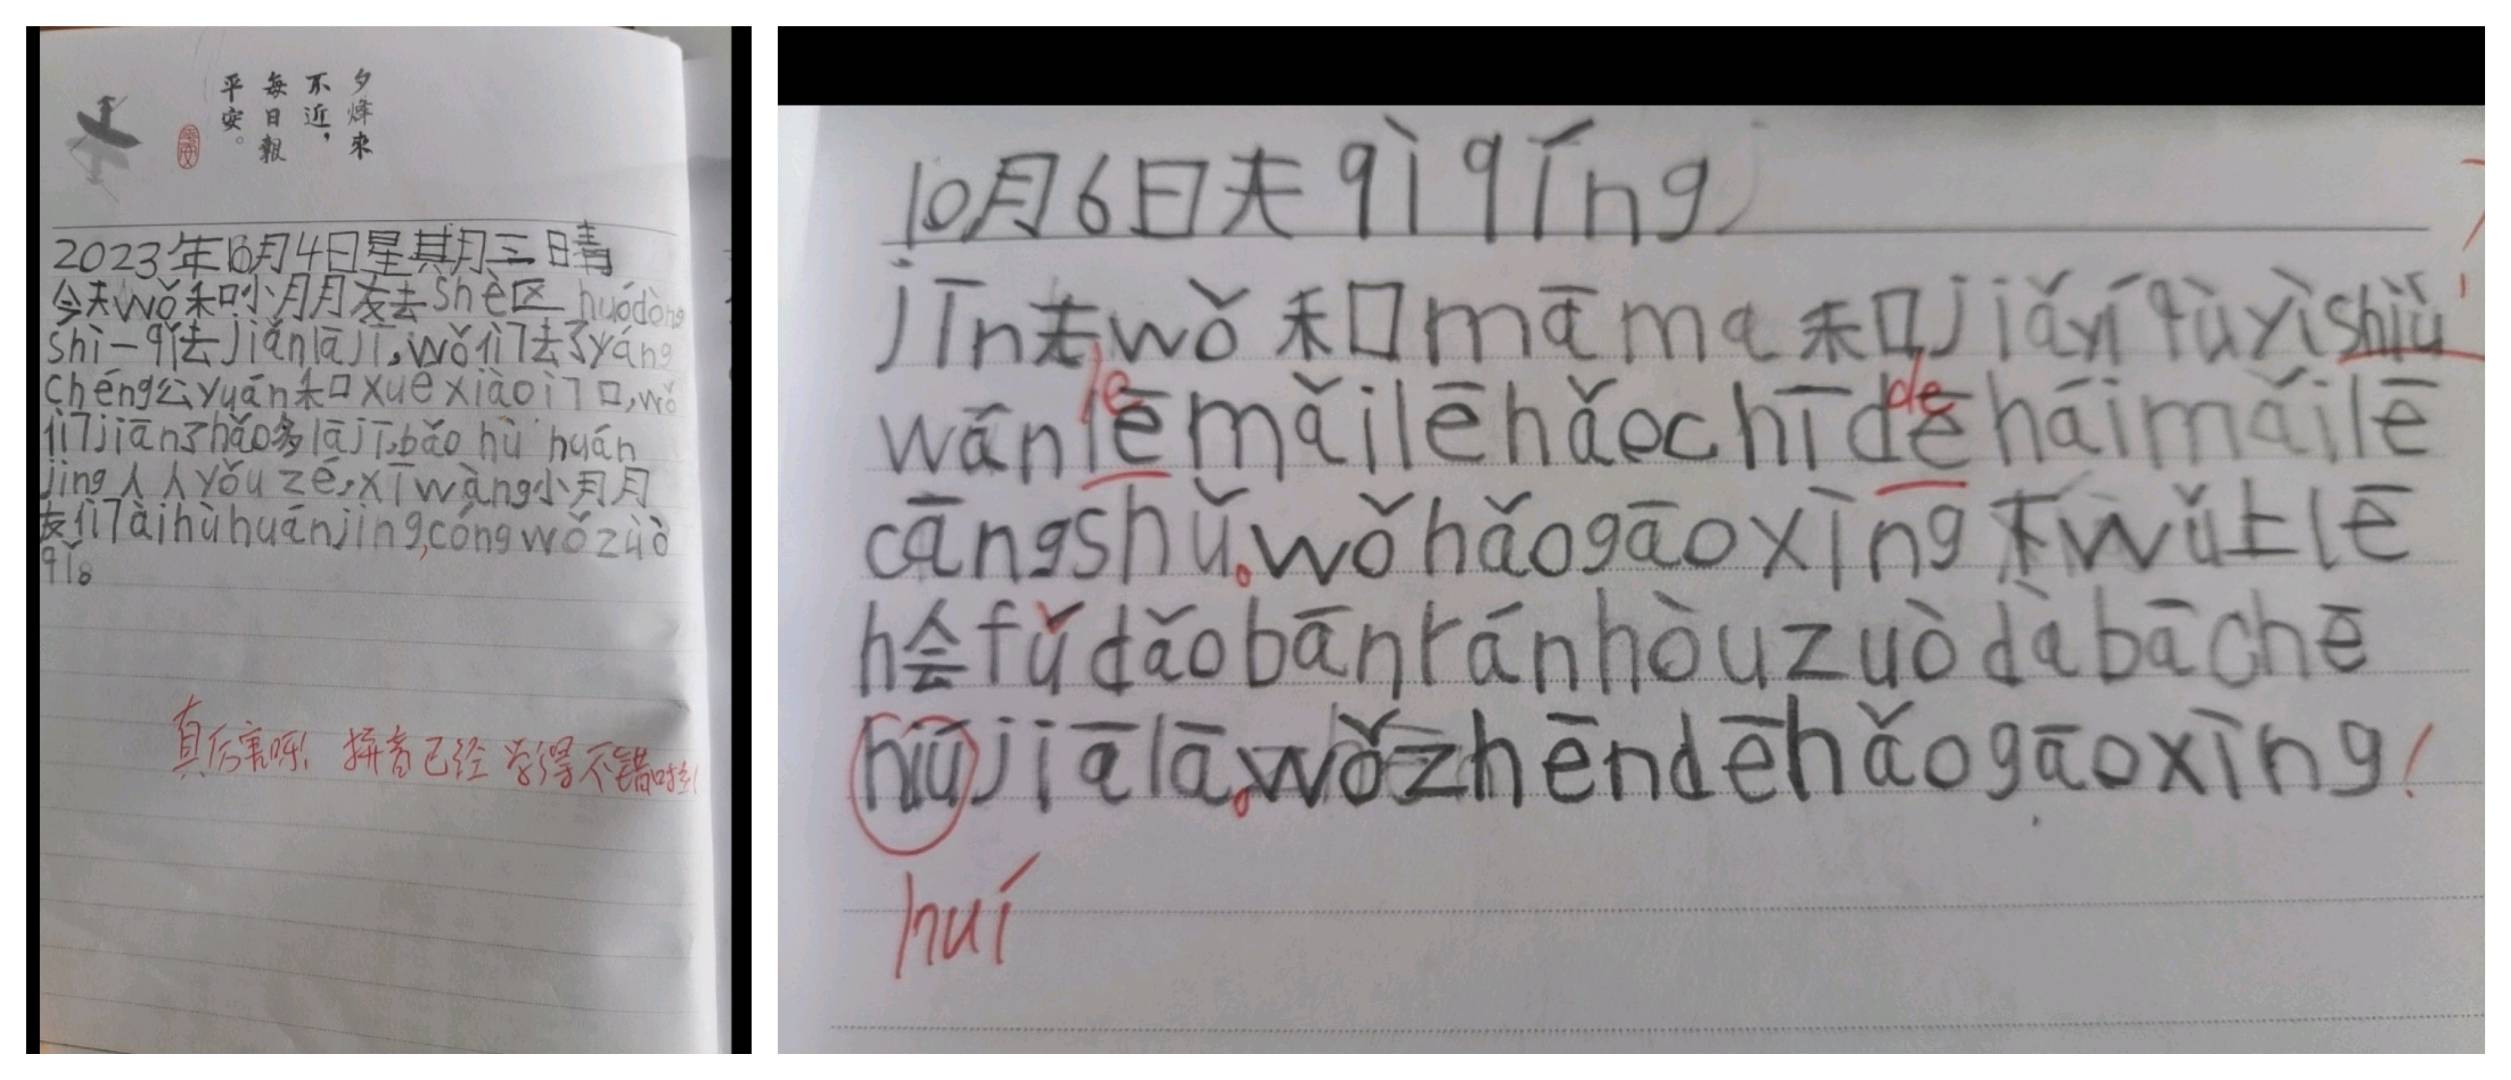 夕烽来
不近，
每日報
平安。
2023年10月4日星期三晴
今天wǒ和小月月友去shè区huódòng
shì一qǐ去jiǎnlājī,wǒ们去了yáng
chéng公yuán和xuéxiào门口,wǒ
们jiǎn了hǎo多lājī,bǎo hù huán
jìng人人yǒu zé,xīwàng小月月
友们àihùhuánjìng,cóngwǒzuò
qǐ。
真厉害呀!拼音已经学得不错啦!
10月6日天qìqíng
jīn天wǒ和māma和jiǎyí qùyìshiǔ
le de
wánlēmǎilēhǎochīdēháimǎilē
cāngshǔ。wǒhǎogāoxìng下wǔ上lē
h会fǔdǎobānránhòuzuòdàbāchē
hiújiālā。wǒzhēndēhǎogāoxìng!
huí